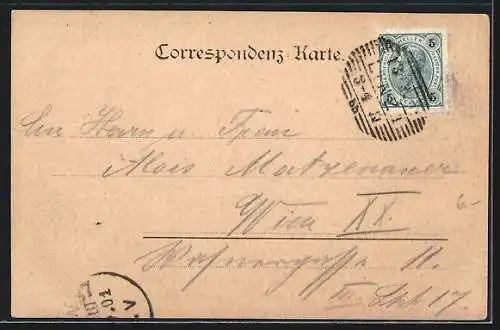 Correspondenz-Karte.
5
5
An Herrn u. Frau
Alois Matzenauer
Wien XX.
Wasnergasse 11.
III. Stk 17.
6-
.01